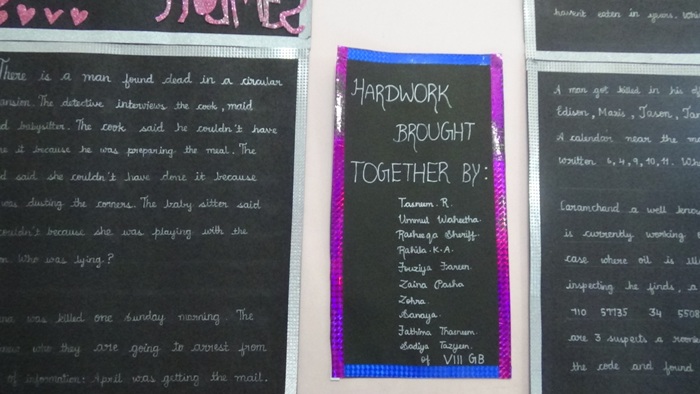 There is a man found dead in a circular
mansion. The detective interviews the cook, maid
babysitter. The cook said he couldn't have
it because he was preparing the meal. The
said she couldn't have done it because
was dusting the corners. The baby sitter said
couldn't because she was playing with the
Who was lying?
was killed one sunday morning. The
who they are going to arrest from
of information: April was getting the mail.
HARDWORK
BROUGHT
TOGETHER BY:
Tasnum. R.
Ummul Waheetha.
Rasheeqa Sheriff.
Rahila. K. A.
Fouziya Fareen.
Zaina Pasha
Zohra.
Sanaya.
Fathima Thasnum.
Sadiya Tazyeen.
of VIII GB
haven't eaten in years.
A man got killed in his
Edison, Maxis, Jason,
A calendar near the
written 6, 4, 9, 10, 11.
Caramchand a well
is currently working
case where oil is
inspecting he finds, a
710 57735 34 5508
are 3 suspects a
the code and found